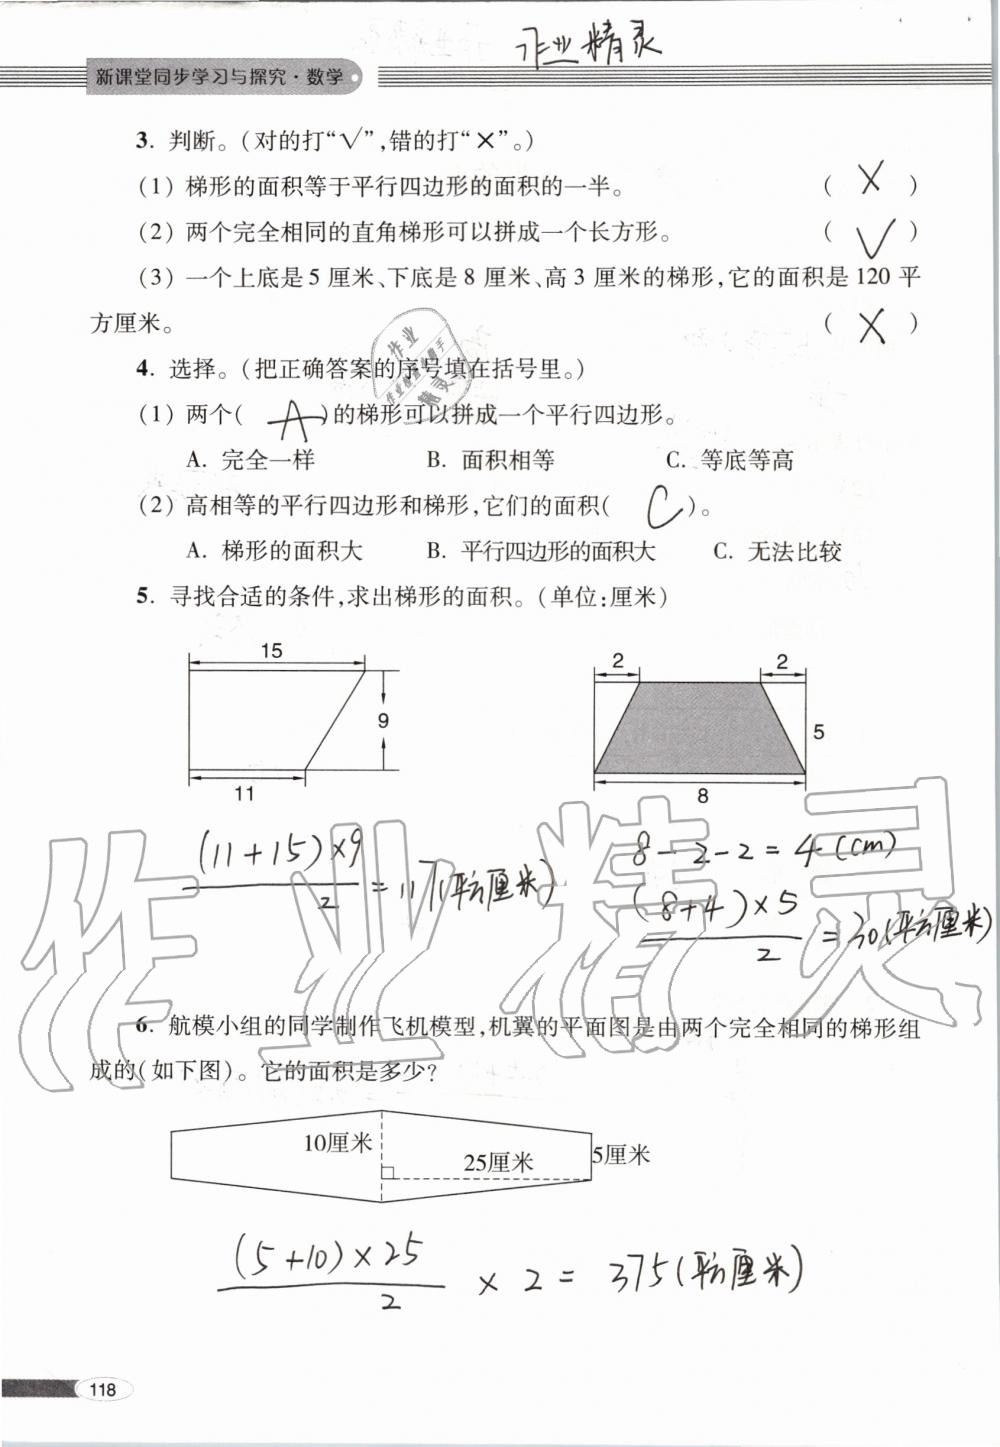 作业精灵
新课堂同步学习与探究·数学
3. 判断。(对的打“√”,错的打“×”。)
(1) 梯形的面积等于平行四边形的面积的一半。 ( × )
(2) 两个完全相同的直角梯形可以拼成一个长方形。 ( √ )
(3) 一个上底是 5 厘米、下底是 8 厘米、高 3 厘米的梯形,它的面积是 120 平
方厘米。 ( × )
4. 选择。(把正确答案的序号填在括号里。)
(1) 两个( A )的梯形可以拼成一个平行四边形。
A. 完全一样 B. 面积相等 C. 等底等高
(2) 高相等的平行四边形和梯形,它们的面积( C )。
A. 梯形的面积大 B. 平行四边形的面积大 C. 无法比较
5. 寻找合适的条件,求出梯形的面积。(单位:厘米)
15
9
11
2 2
5
8
(11+15)×9
2
=117(平方厘米)
8-2-2=4(cm)
(8+4)×5
2
=30(平方厘米)
作业精灵
6. 航模小组的同学制作飞机模型,机翼的平面图是由两个完全相同的梯形组
成的(如下图)。它的面积是多少?
10厘米
25厘米
5厘米
(5+10)×25
2
×2=375(平方厘米)
118